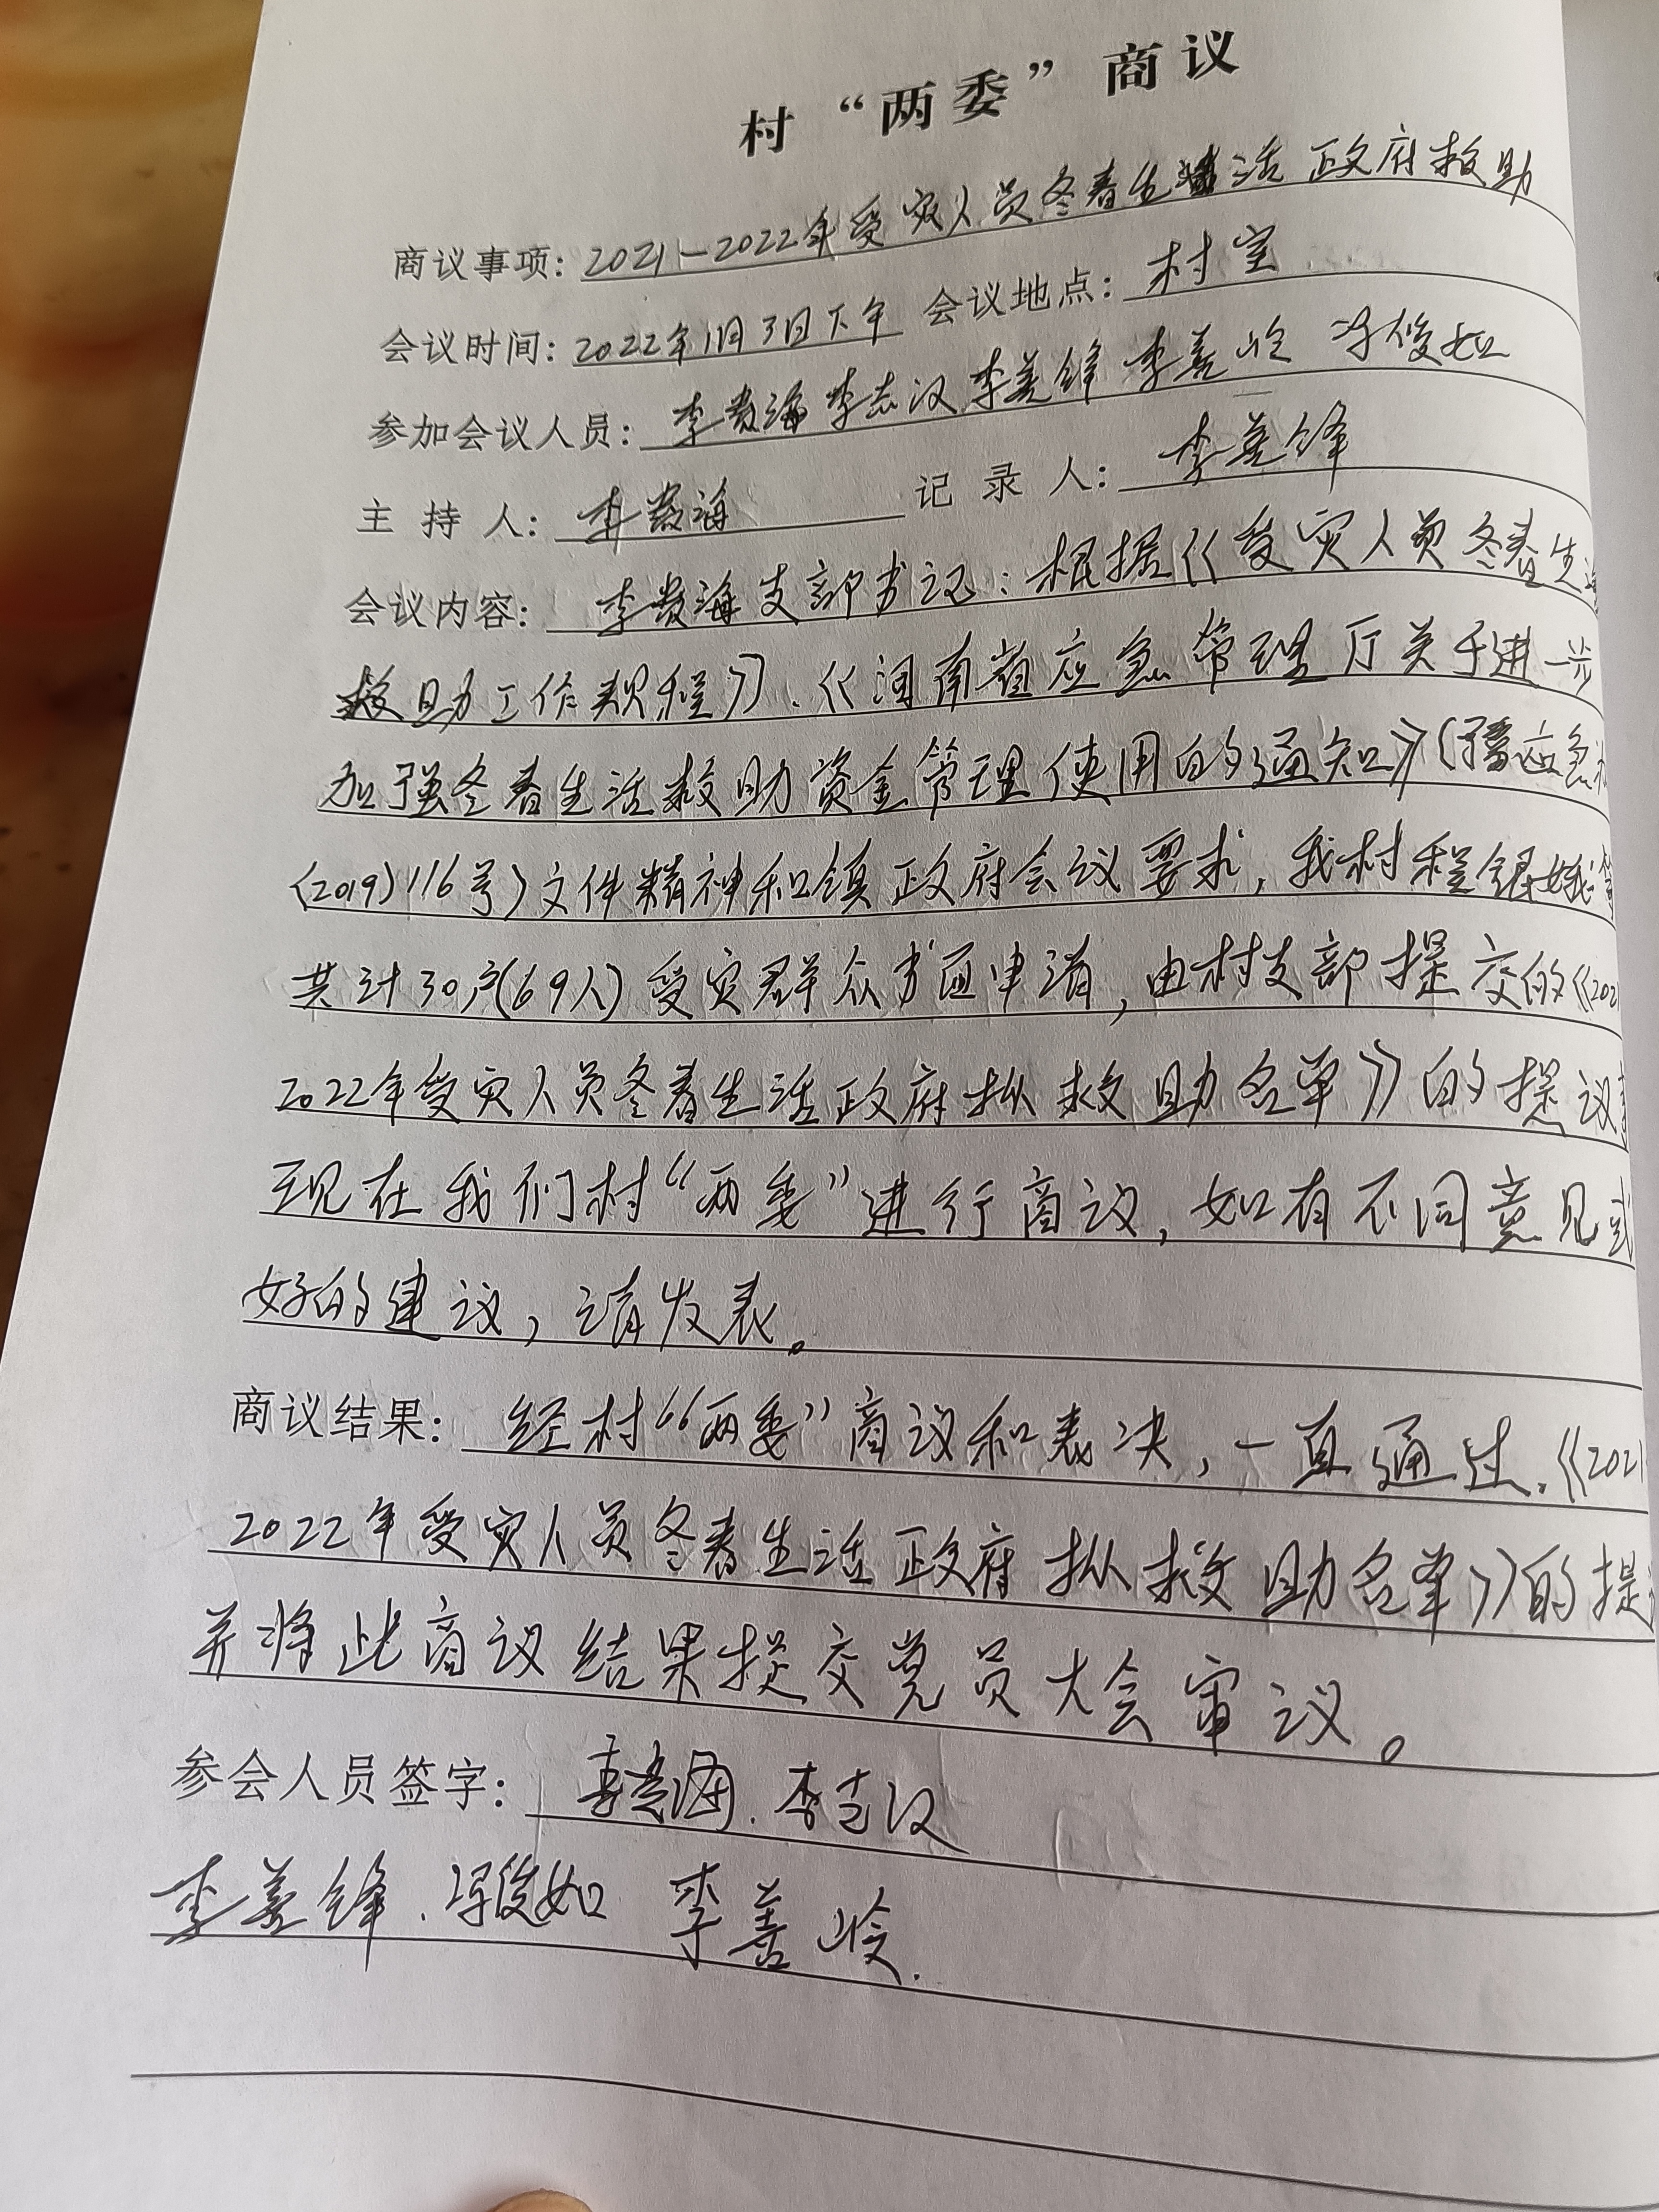 村“两委”商议
商议事项：2021-2022年受灾人员冬春生活政府救助
会议时间：2022年1月3日下午 会议地点：村室
参加会议人员：李贵海 李志汉 李善锋 李善岭 冯俊如
主持人：李贵海 记录人：李善锋
会议内容：李贵海支部书记：根据《受灾人员冬春生
救助工作规程》、《河南省应急管理厅关于进一步
加强冬春生活救助资金管理使用的通知》（豫应急
〈2019〉116号）文件精神和镇政府会议要求，我村程银娥等
共计30户(69人)受灾群众书面申请，由村支部提交的《202
2022年受灾人员冬春生活政府拟救助名单》的提议
现在我们村“两委”进行商议，如有不同意见或
好的建议，请发表。
商议结果：经村“两委”商议和表决，一直通过《2021
2022年受灾人员冬春生活政府拟救助名单》的提
并将此商议结果提交党员大会审议。
参会人员签字：李贵海、李志汉
李善锋、冯俊如 李善岭.